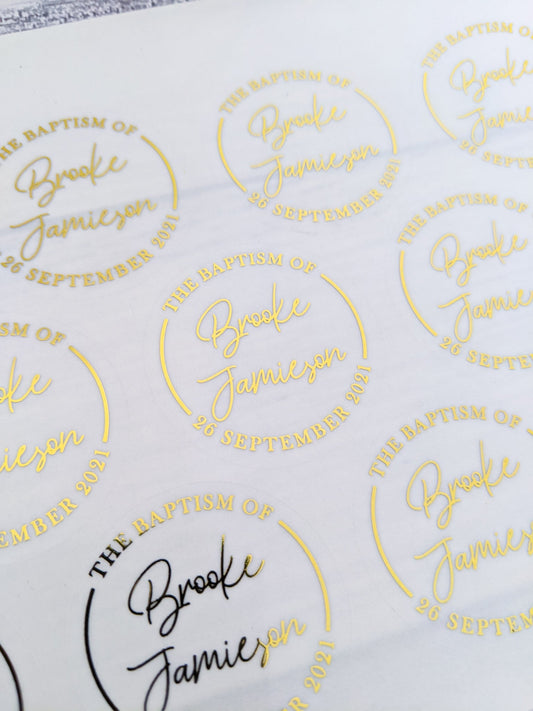 THE BAPTISM OF
Brooke
Jamieson
26 SEPTEMBER 2021
THE BAPTISM OF
Brooke
Jamieson
26 SEPTEMBER 2021
THE BAPTISM
Brooke
Jamies
26 SEPTE
THE BAPTISM OF
Brooke
Jamieson
26 SEPTEMBER 2021
THE BAPTISM
Brooke
Jamies
26 SEPTEM
BAPTISM OF
ooke
mieson
TEMBER 2021
THE BAPTISM OF
Brooke
Jamieso
26 SEPTEM
THE BAPTISM OF
Brooke
Jamieson
2021